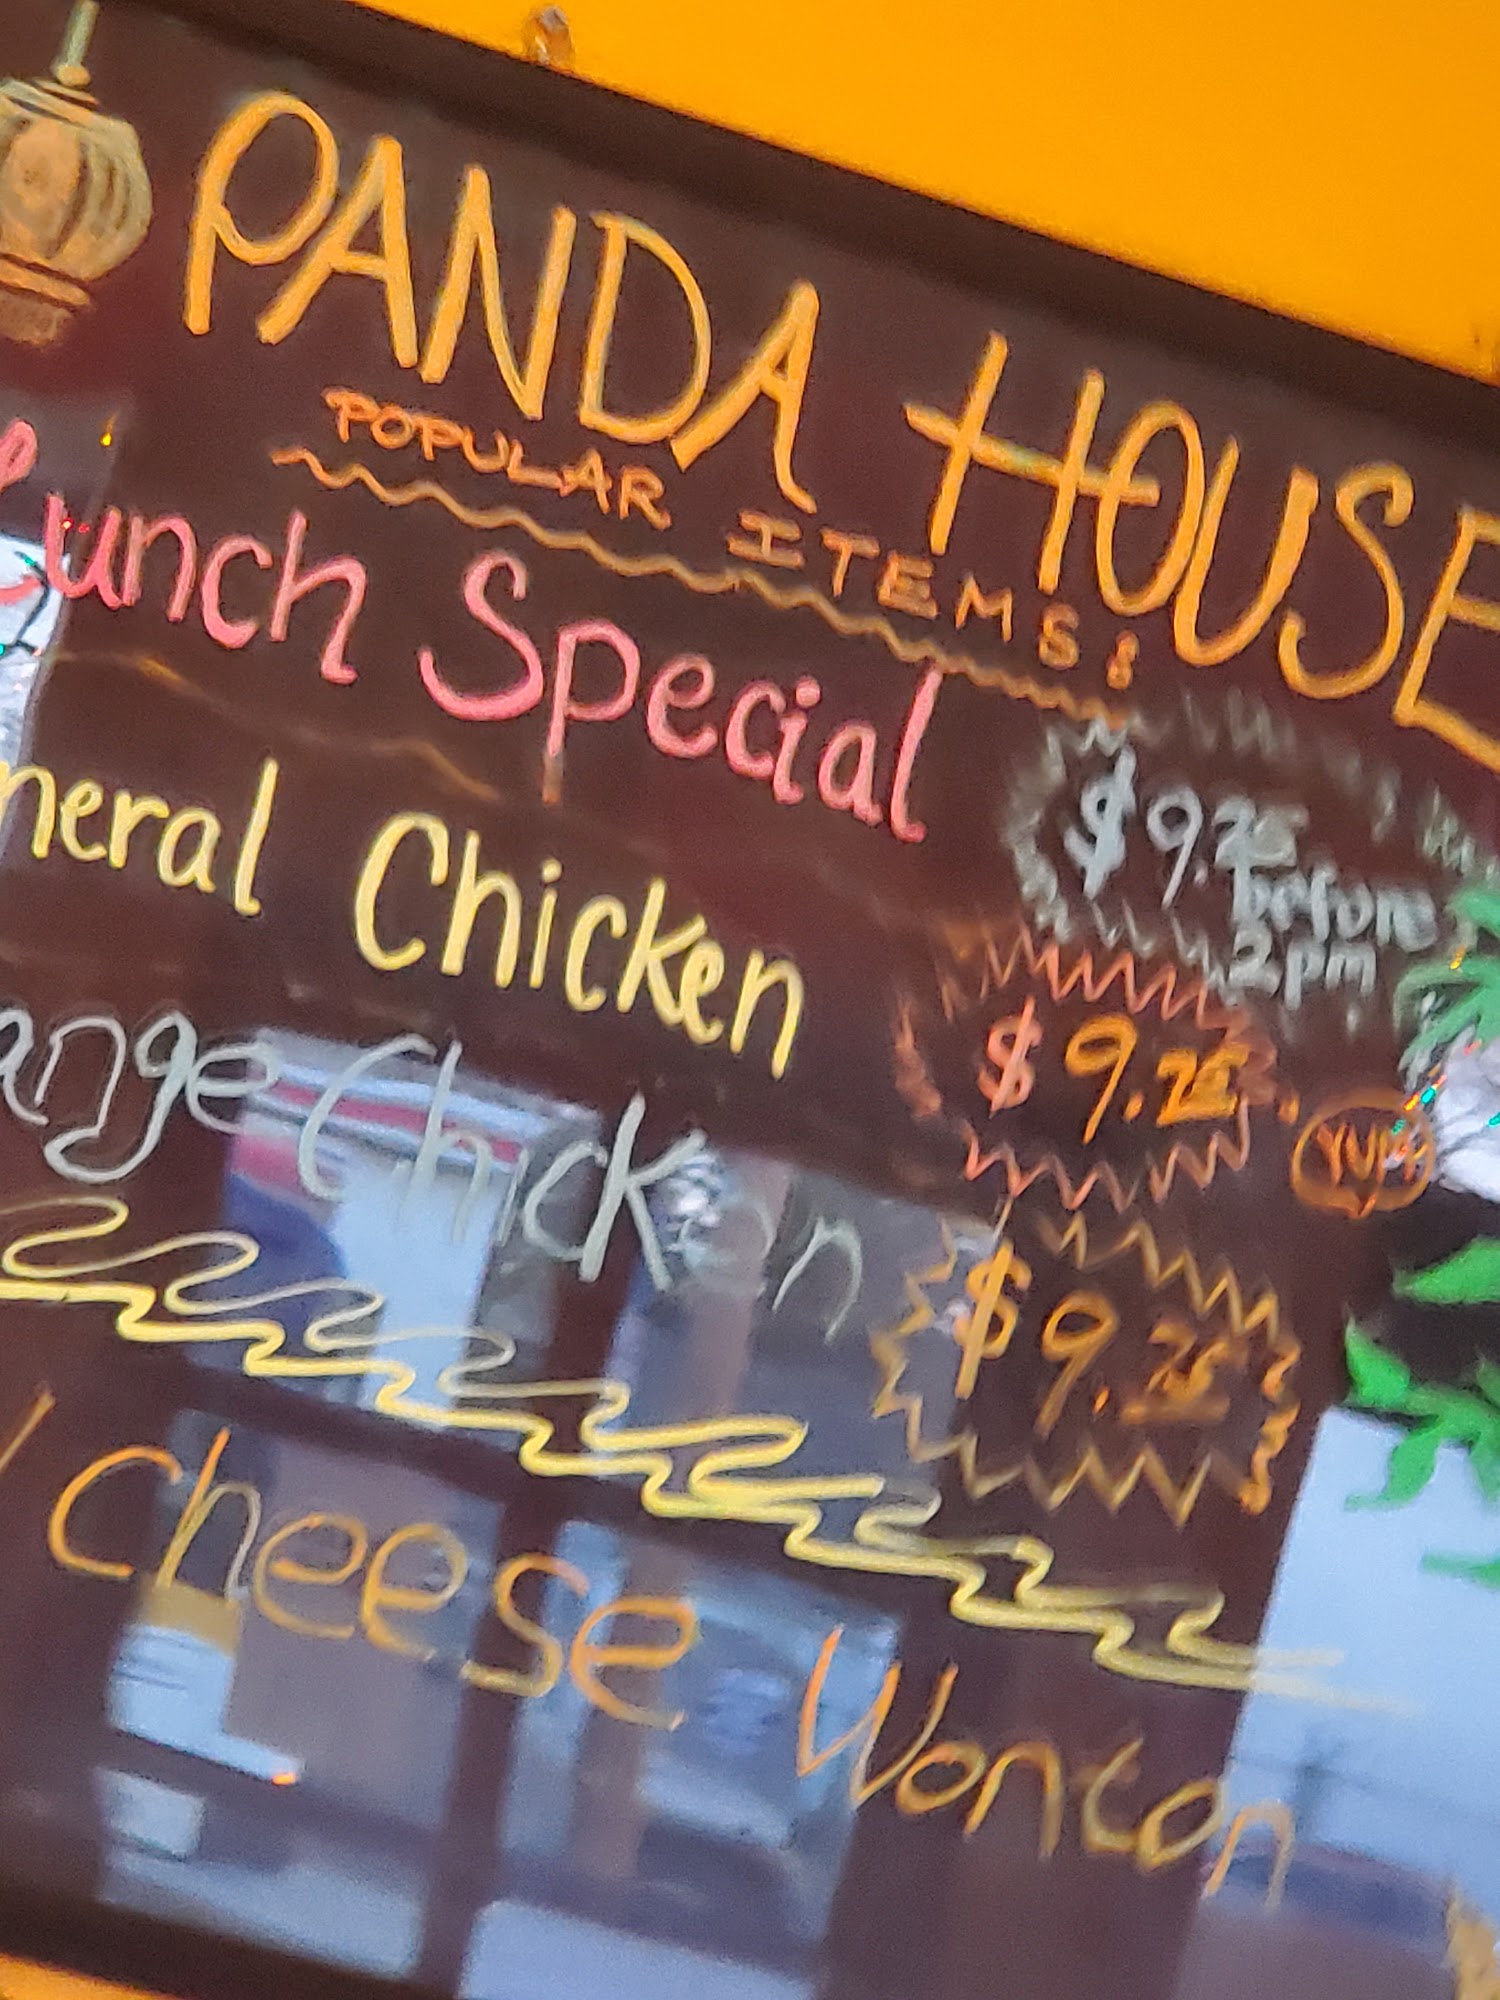 PANDA HOUSE
POPULAR ITEMS:
Lunch Special $9.25 before 2pm
neral Chicken $9.25
YUM
ange Chicken $9.25
Cheese Wonton